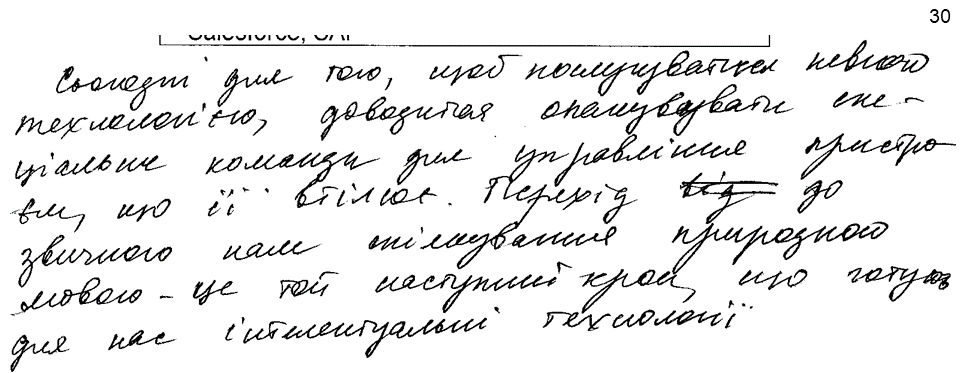 30
Salesforce, SAP
Сьогодні для того, щоб послуговуватися певною
технологією, доводиться опановувати спе-
ціальне команди для управління пристро-
єм, що її втілює. Перехід від до
звичного нам спілкування природною
мовою – це той наступний крок, що готують
для нас інтелектуальні технології